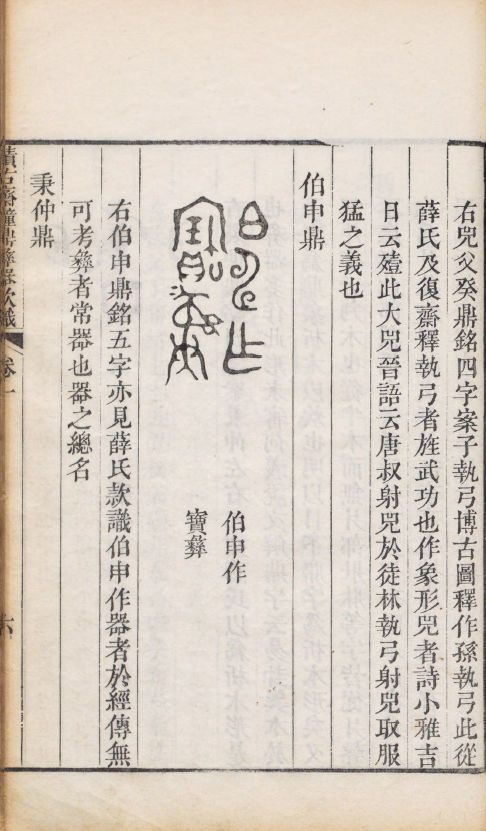 右兕父癸鼎銘四字案子執弓博古圖釋作孫執弓此從
薛氏及復齋釋執弓者旌武功也作象形兕者詩小雅吉
日云殪此大兕晉語云唐叔射兕於徒林執弓射兕取服
猛之義也
伯申鼎
伯申作
寶彝
右伯申鼎銘五字亦見薛氏款識伯申作器者於經傳無
可考彝者常器也器之總名
秉仲鼎
積古齋鐘鼎彝器款識
卷一
六